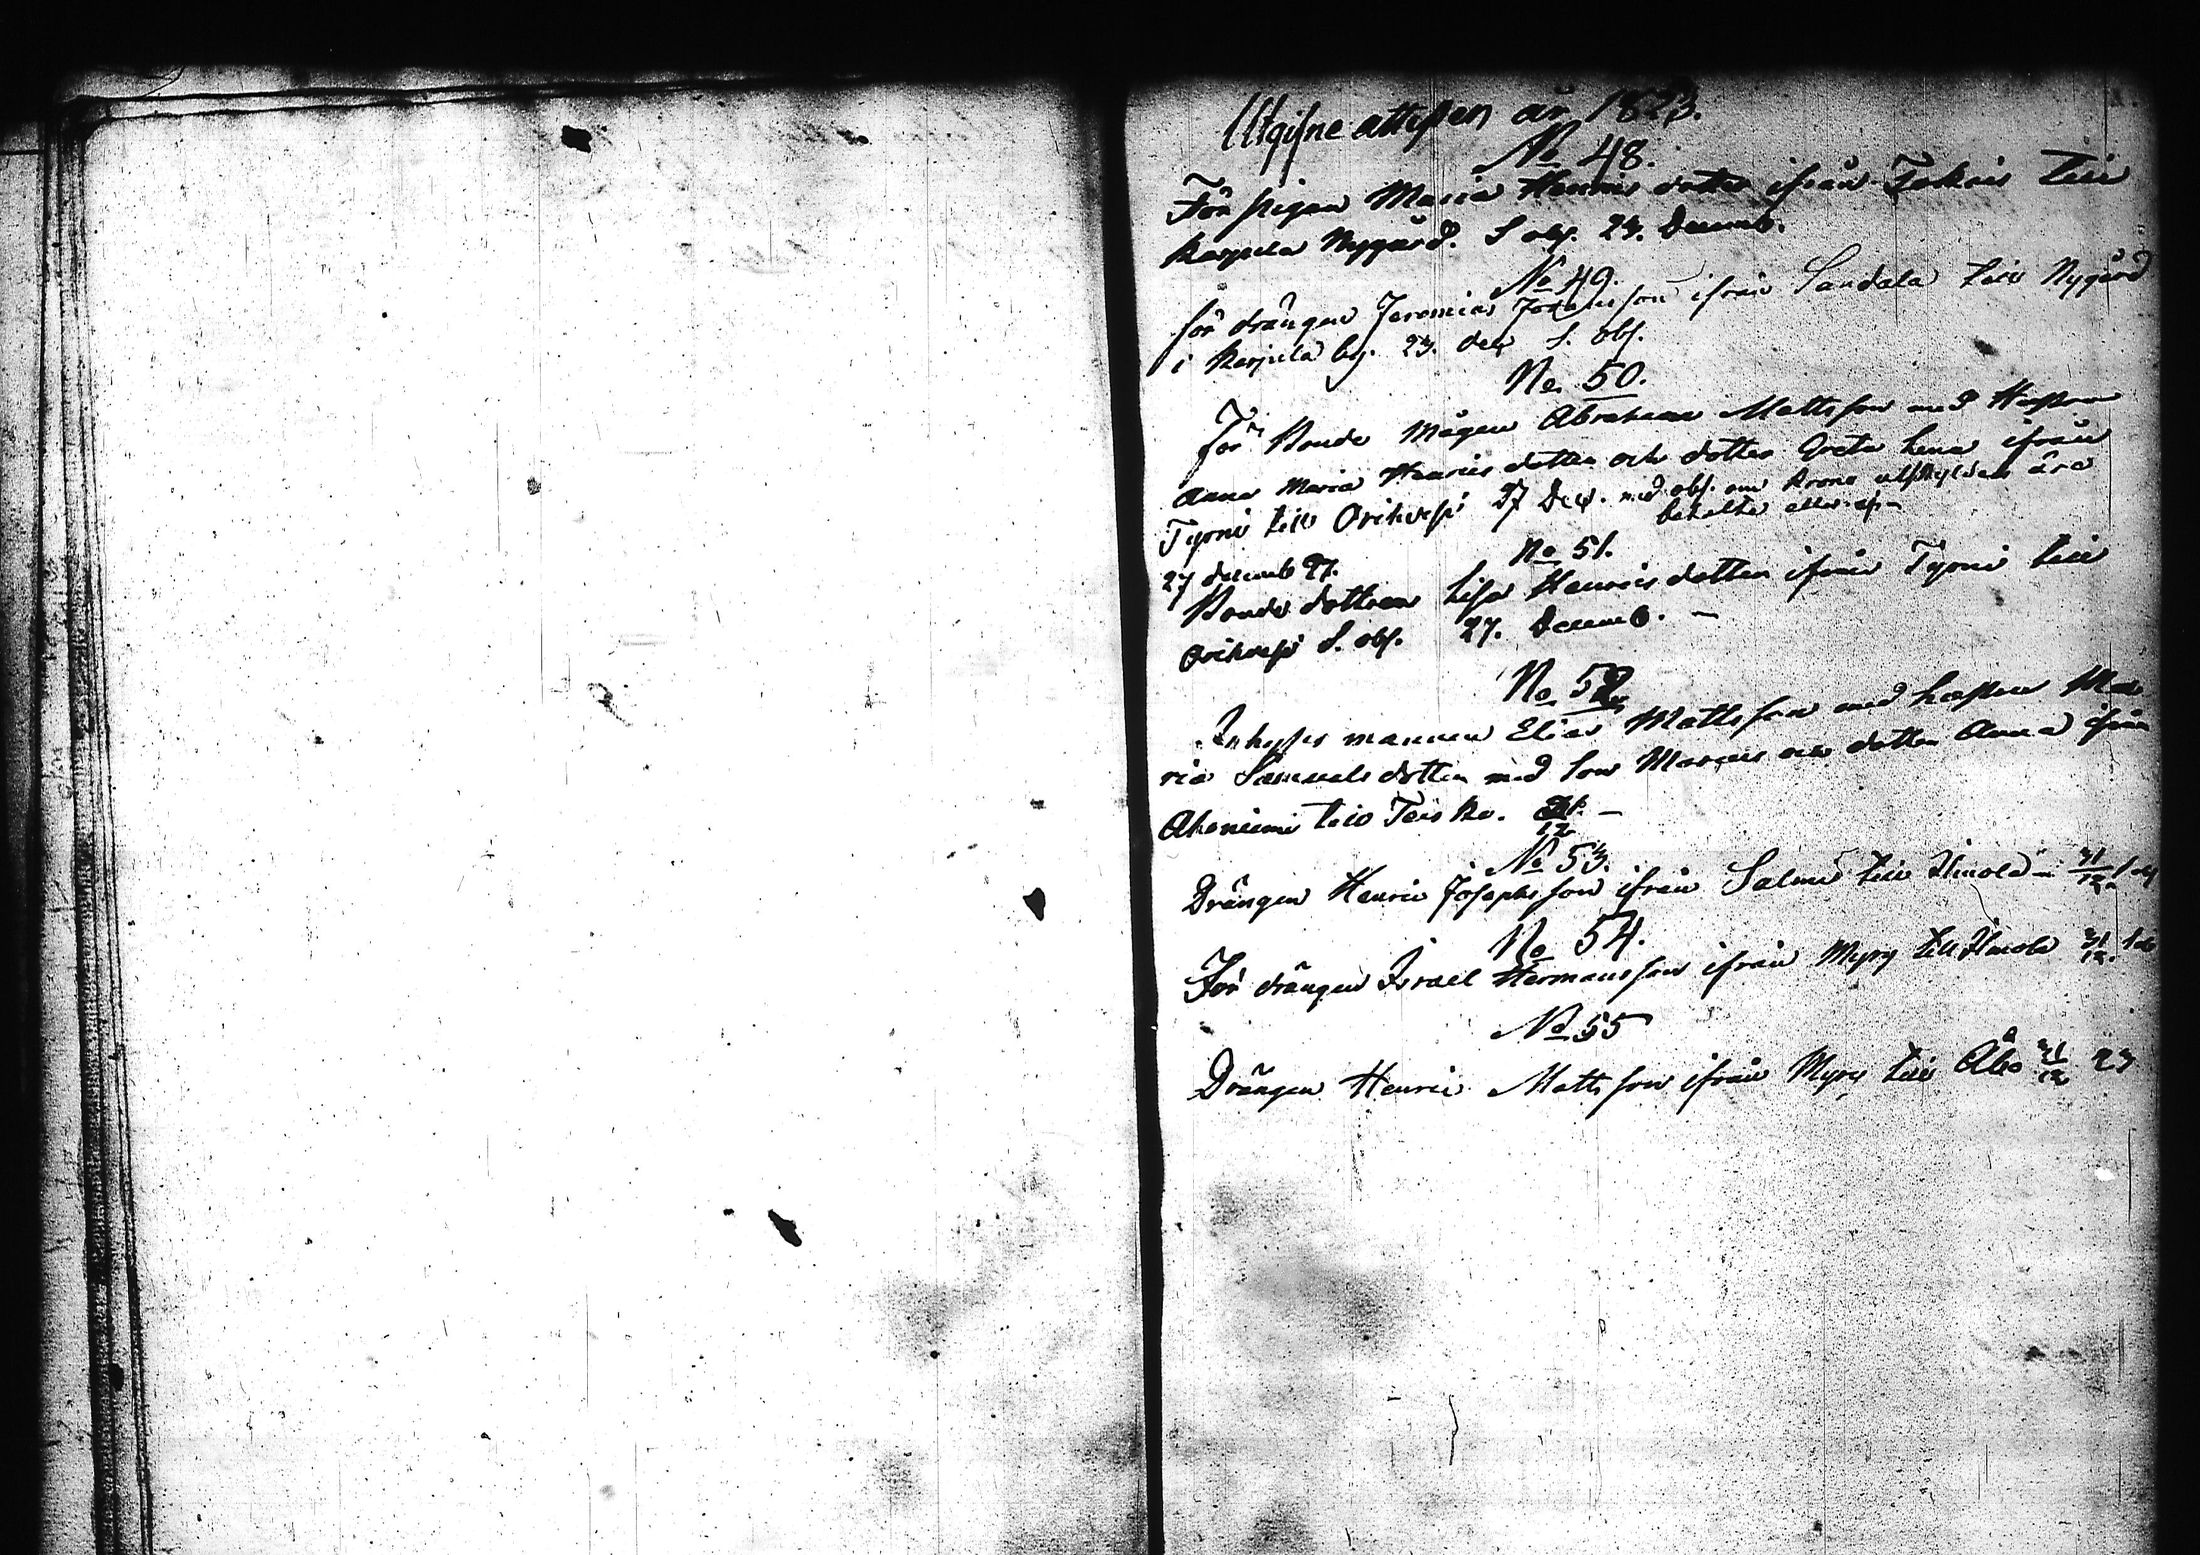 Utgifne attester år 1823.
No 48.
För pigan Maria Henricsdotter ifrån till
Karjula Nygård. S. obs. 23. Decemb.
No 49.
för drängen Jeremias Josephsson ifrån Sandala till Nygård
i Karjula by. 23. Dec. S. obs.
No 50.
För Bonde Mågen Abraham Mattsson med Hustrun
Anna Maria Henricsdotter och dotter Greta Lena ifrån
Tyrni till Orihvesi 27 Dec. med obs. om Krono utskylder äro
betalte eller ej. –
27 decemb 27.
No 51.
Bonde dottren Lisa Henricsdotter ifrån Tyrni till
Orihvesi S. obs. 27. Decemb. –
No 52
Inhyses mannen Elias Mattsson med hustru Ma
ria Samuelsdotter med son Marcus och dotter Anna ifrån
Ahoniemi till Teisko. 31/12 –
No 53.
Drängen Henric Josephsson ifrån Salmi till Urnola 31/12
No 54.
För drängen Israel Hermansson ifrån Myry till Urnola 31/12.
No 55
Drängen Henric Mattsson ifrån Myry till Åbo 31/12 23